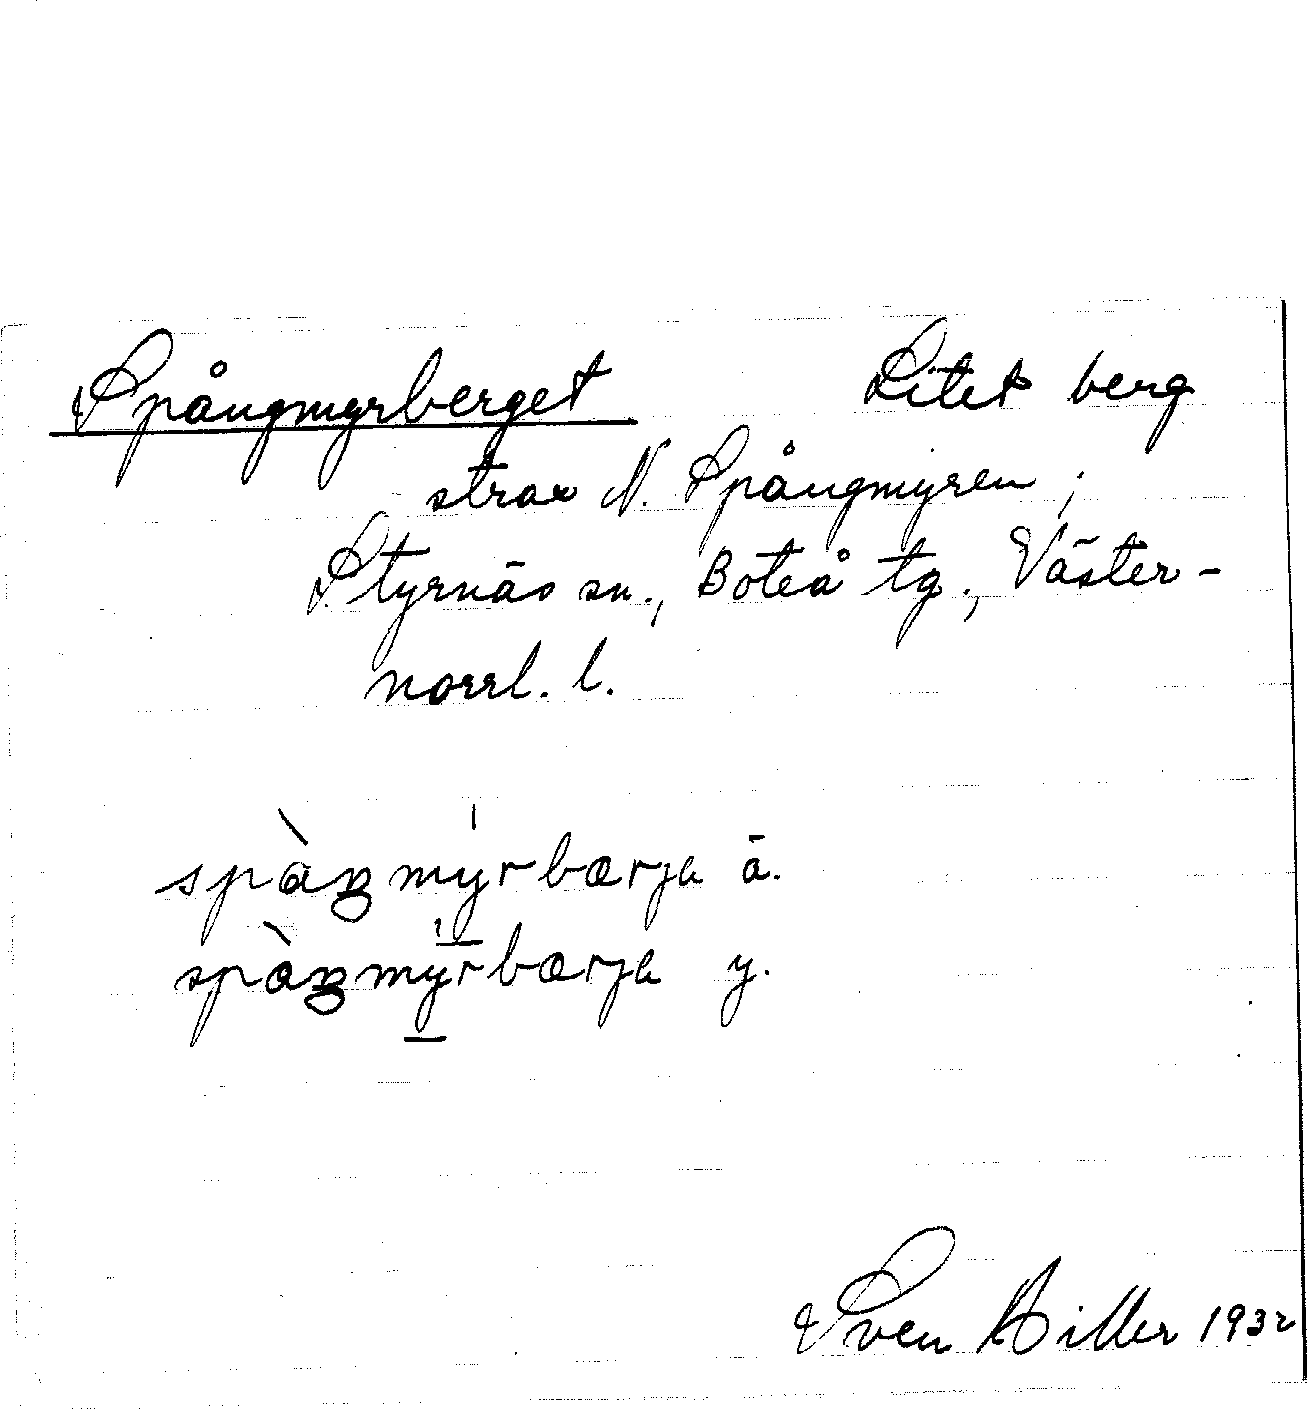 Spångmyrberget Litet berg
strax N. Spångmyren;
Styrnäs sn., Boteå tg., Väster-
norrl. l.
spàŋmýrbærja ä.
spàŋmýrbærja y.
Sven Hiller 1932